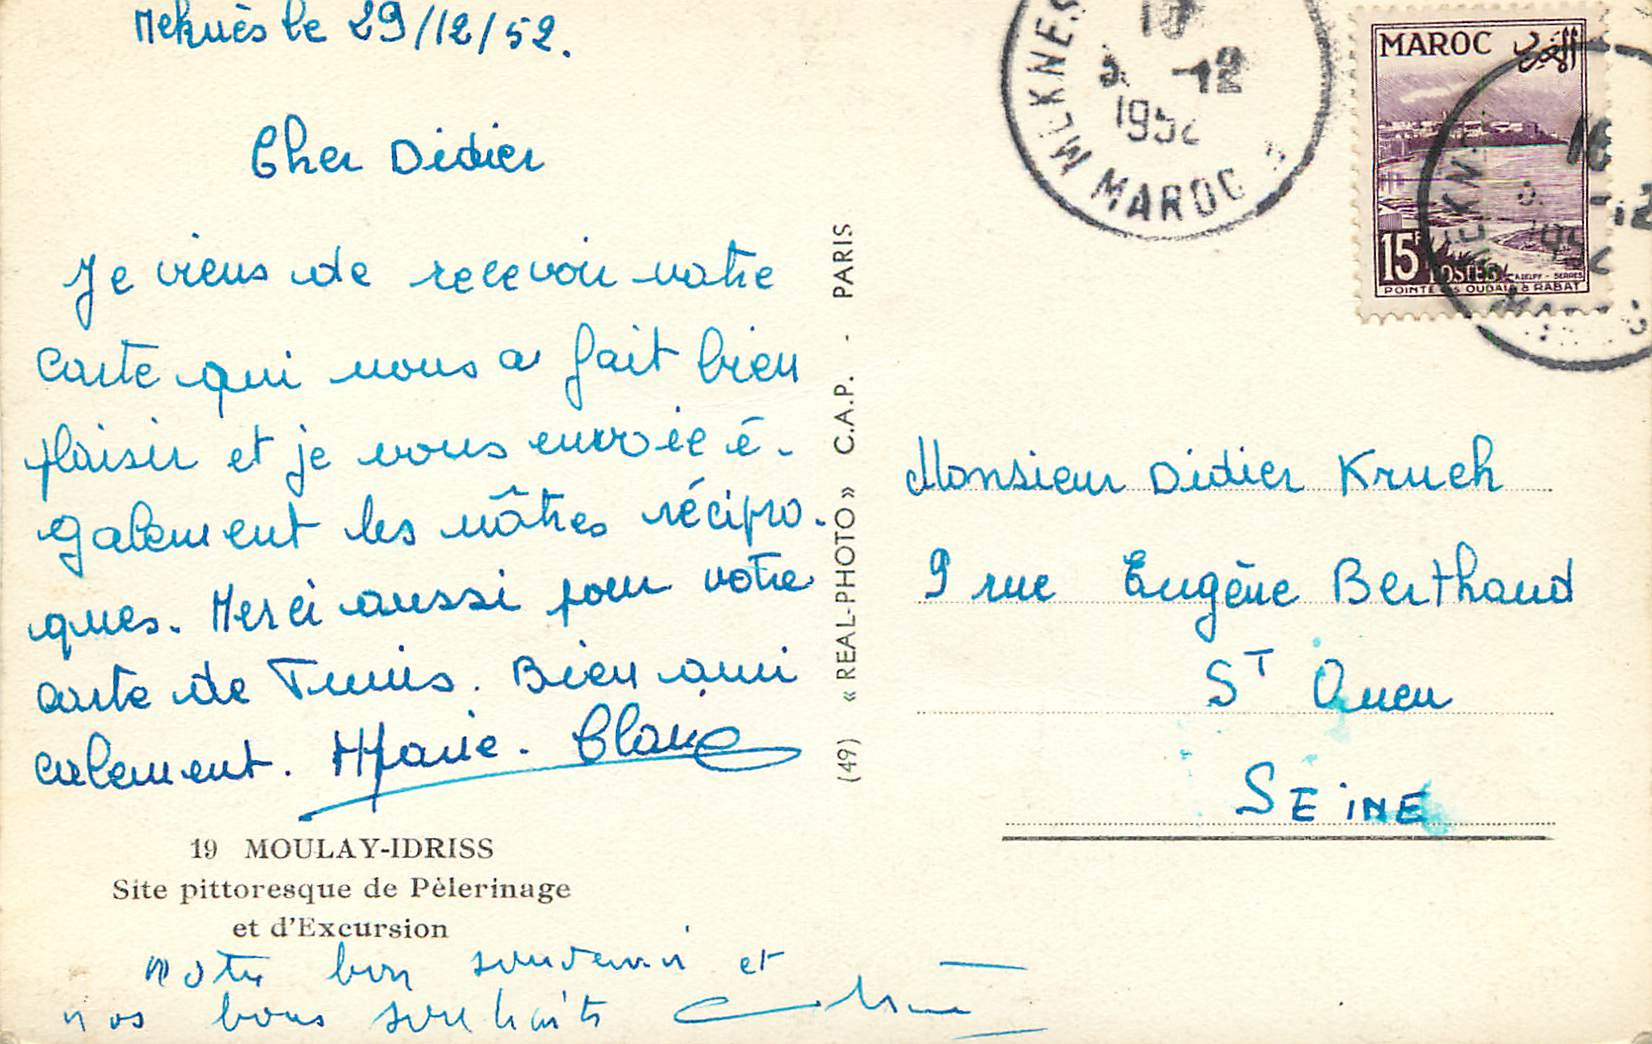 Meknès le 29/12/52.
Cher Didier
Je viens de recevoir votre
carte qui nous a fait bien
plaisir et je vous envoie é-
galement les nôtres récipro-
ques. Merci aussi pour votre
carte de Tunis. Bien ami
calement. Marie-Claire
19 MOULAY-IDRISS
Site pittoresque de Pèlerinage
et d'Excursion
Notre bon souvenir et
nos bons souhaits
(49) « REAL-PHOTO » C.A.P. - PARIS
MEKNES
-12
1952
MAROC
MAROC المغرب
15F POSTES
POINTE des OUDAIA à RABAT
MEKNES
18
-12
1952
MAROC
Monsieur Didier Kruch
9 rue Eugène Berthoud
ST Ouen
SEINE